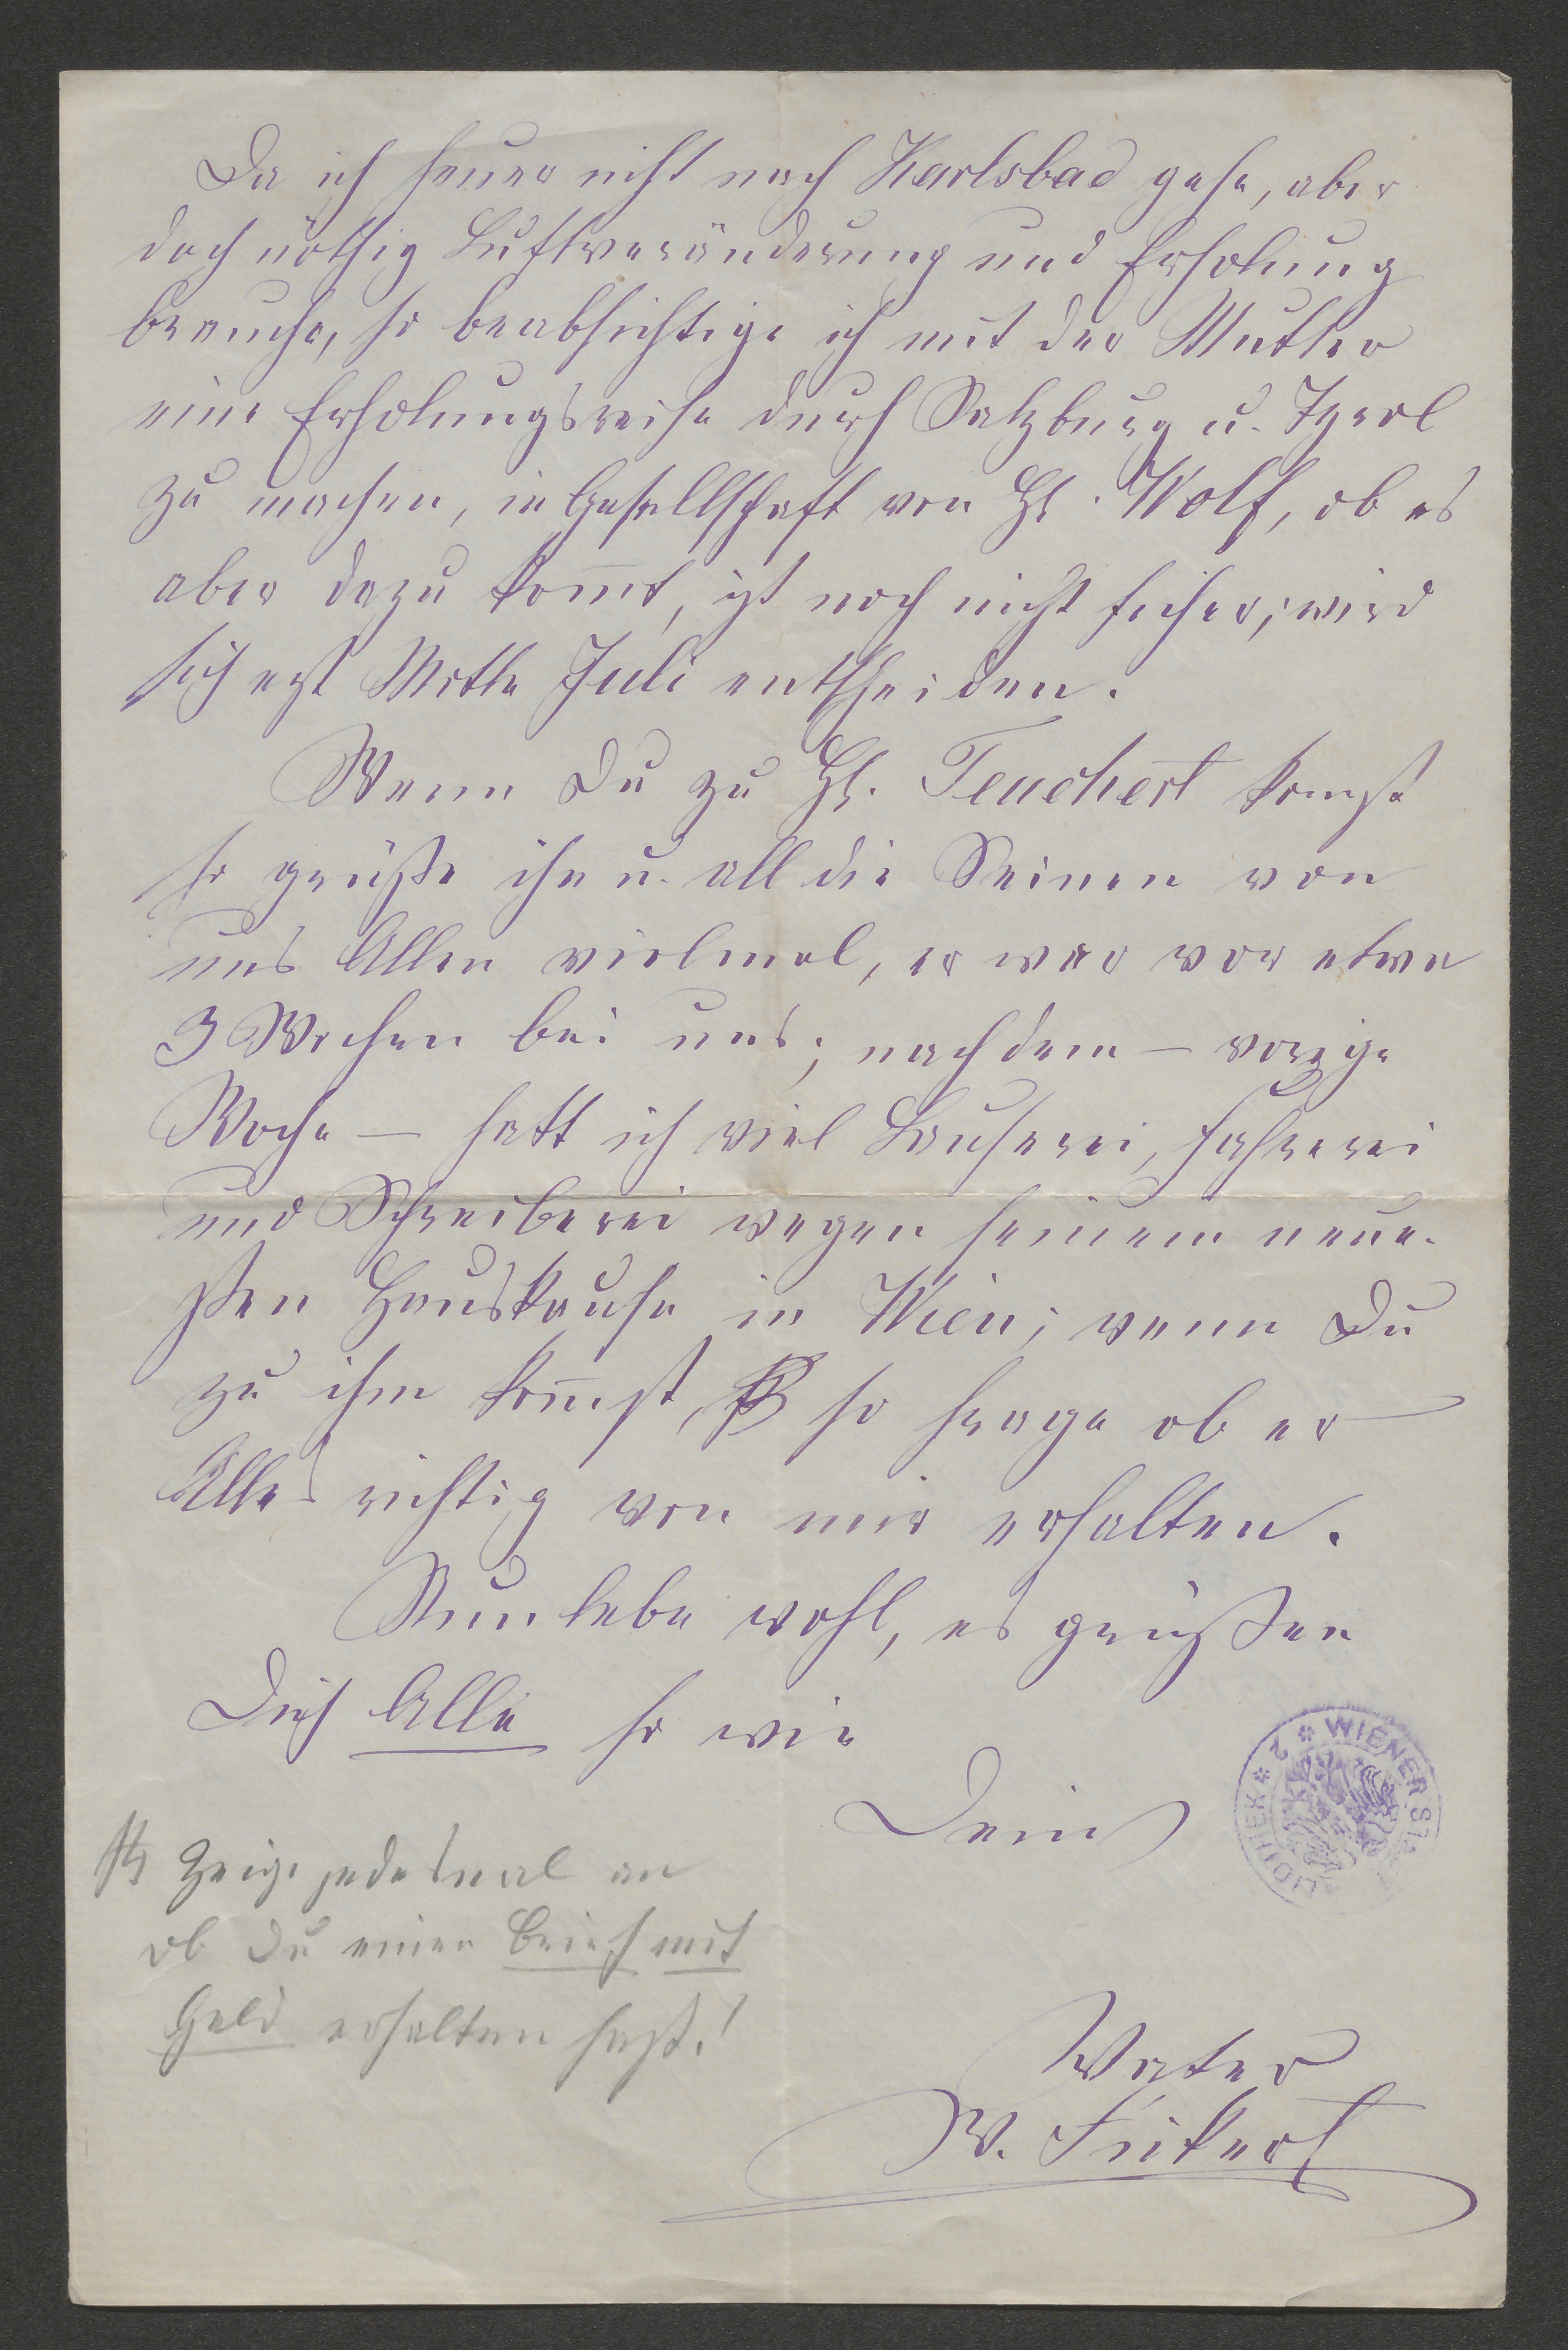 Da ich heuer nicht nach Karlsbad gehe, aber
doch nöthig Luftveränderung und Erholung
brauche, so beabsichtige ich mit der Mutter
eine Erholungsreise durch Salzburg u. Tyrol
zu machen, in Gesellschaft von H. Wolf, ob es
aber dazu kom̅t, ist noch nicht sicher, wird
sich erst Mitte Juli entscheiden.
Wenn Du zu H. Teuchert komst
so grüße ihn u. all die Seinen von
uns Allen vielmal, er war vor etwa
3 Wochen bei uns; nachdem — vorige
Woche — hatt ich viel Lauferei, Fahrerei
und Schreiberei wegen seinem neue-
sten Hauskaufe in Wien; wenn Du
zu ihm kom̅st, so frage ob er
Alles richtig von mir erhalten.
Nun lebe wohl, es grüßen
Dich Alle so wie
Dein
Vater
W. Fickert
Zeige jedesmal an
ob Du einen Brief mit
Geld erhalten hast!
WIENER
LIOTHEK * 2 *